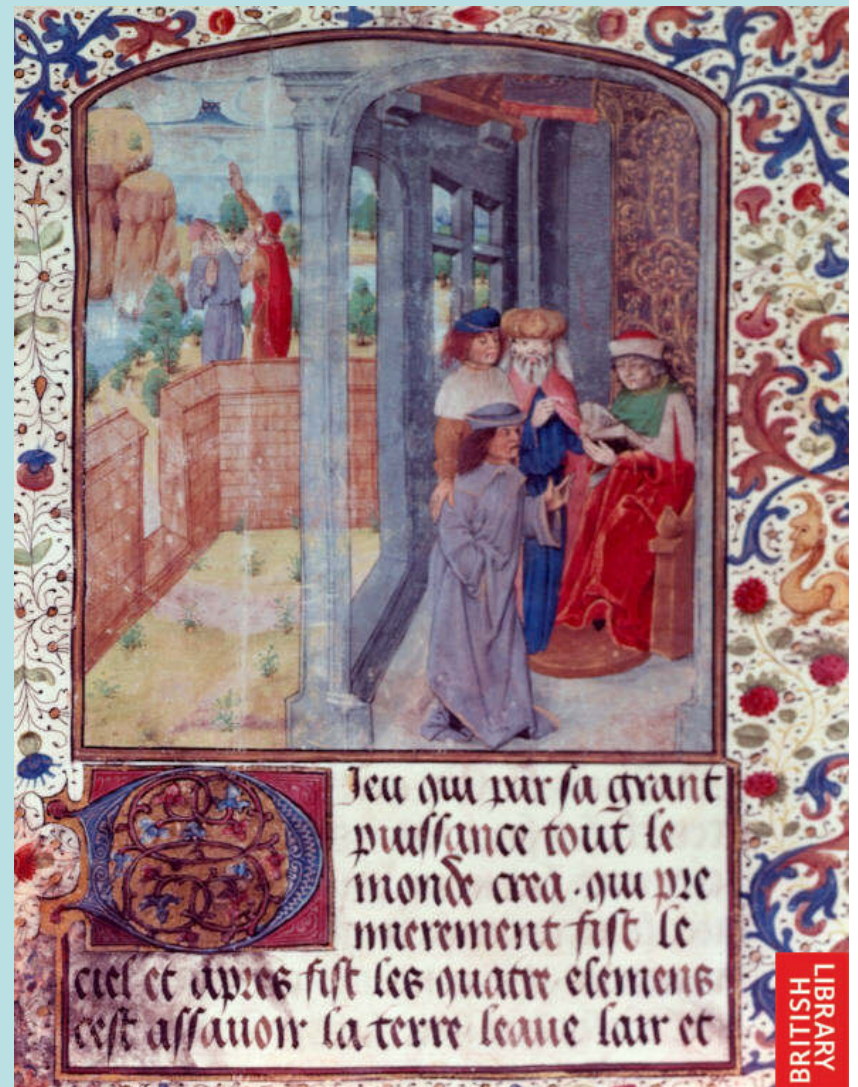 Dieu qui par sa grant
puissance tout le
monde crea. qui pre
mierement fist le
ciel et apres fist les quatre elemens
cest assavoir la terre leaue lair et
LIBRARY
BRITISH